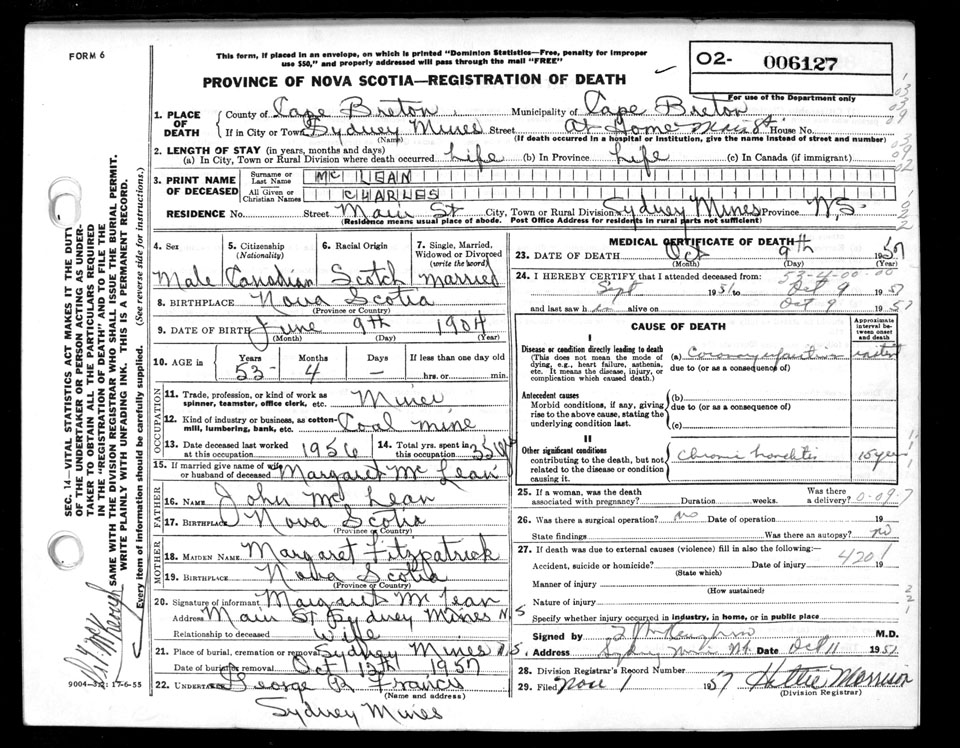 FORM 6
This form, if placed in an envelope, on which is printed "Dominion Statistics—Free, penalty for improper
use $50," and properly addressed will pass through the mail "FREE"
PROVINCE OF NOVA SCOTIA—REGISTRATION OF DEATH
02- 006127
For use of the Department only
1. PLACE OF DEATH
County of Cape Breton Municipality of Cape Breton
If in City or Town Sydney Mines Street At Home Main St House No.
(Name) (If death occurred in a hospital or institution, give the name instead of street and number)
2. LENGTH OF STAY (in years, months and days)
(a) In City, Town or Rural Division where death occurred Life (b) In Province Life (c) In Canada (if immigrant)
3. PRINT NAME OF DECEASED
Surname or Last Name Mc LEAN
All Given or Christian Names CHARLES
RESIDENCE No. Street Main St City, Town or Rural Division Sydney Mines Province N.S.
(Residence means usual place of abode. Post Office Address for residents in rural parts not sufficient)
4. Sex 5. Citizenship (Nationality) 6. Racial Origin 7. Single, Married, Widowed or Divorced (write the word)
Male Canadian Scotch Married
8. BIRTHPLACE Nova Scotia
(Province or Country)
9. DATE OF BIRTH June 9th 1904
(Month) (Day) (Year)
10. AGE in Years Months Days If less than one day old
53 4 — hrs. or min.
OCCUPATION
11. Trade, profession, or kind of work as spinner, teamster, office clerk, etc. Miner
12. Kind of industry or business, as cotton-mill, lumbering, bank, etc. Coal mine
13. Date deceased last worked at this occupation 1956 14. Total yrs. spent in this occupation 35
15. If married give name of wife or husband of deceased Margaret Mc Lean
FATHER
16. NAME John Mc Lean
17. BIRTHPLACE Nova Scotia
(Province or Country)
MOTHER
18. MAIDEN NAME Margaret Fitzpatrick
19. BIRTHPLACE Nova Scotia
(Province or Country)
20. Signature of informant Margaret Mc Lean
Address Main St Sydney Mines N.S
Relationship to deceased Wife
21. Place of burial, cremation or removal Sydney Mines N.S.
Date of burial or removal Oct 12th 1957
22. UNDERTAKER George R Francis
(Name and address)
Sydney Mines
9004-3:2: 17-6-55
MEDICAL CERTIFICATE OF DEATH
23. DATE OF DEATH Oct 9th 1957
(Month) (Day) (Year)
24. I HEREBY CERTIFY that I attended deceased from:
53-4-00-00
Sept 1951 to Oct 9 1957
and last saw h im alive on Oct 9 1957
CAUSE OF DEATH
Approximate interval between onset and death
I
Disease or condition directly leading to death
(This does not mean the mode of dying, e.g., heart failure, asthenia, etc. It means the disease, injury, or complication which caused death.)
(a) Coronary infarction instant
due to (or as a consequence of)
Antecedent causes
Morbid conditions, if any, giving rise to the above cause, stating the underlying condition last.
(b)
due to (or as a consequence of)
(c)
II
Other significant conditions
contributing to the death, but not related to the disease or condition causing it.
Chronic bronchitis 15 years
25. If a woman, was the death associated with pregnancy? Duration weeks. Was there a delivery? 0-09-7
26. Was there a surgical operation? no Date of operation 19
State findings Was there an autopsy? no
27. If death was due to external causes (violence) fill in also the following:—
Accident, suicide or homicide? Date of injury 19
(State which) 4201
Manner of injury
(How sustained)
Nature of injury
Specify whether injury occurred in industry, in home, or in public place
Signed by M.D.
Address Sydney Mines N.S. Date Oct 11 1957
28. Division Registrar's Record Number
29. Filed Nov 1 1957 Hattie Morrison
(Division Registrar)
SEC. 14—VITAL STATISTICS ACT MAKES IT THE DUTY
OF THE UNDERTAKER OR PERSON ACTING AS UNDER-
TAKER TO OBTAIN ALL THE PARTICULARS REQUIRED
IN THE "REGISTRATION OF DEATH" AND TO FILE THE
SAME WITH THE DIVISION REGISTRAR WHO SHALL ISSUE THE BURIAL PERMIT.
WRITE PLAINLY WITH UNFADING INK. THIS IS A PERMANENT RECORD.
Every item of information should be carefully supplied. (See reverse side for instructions.)